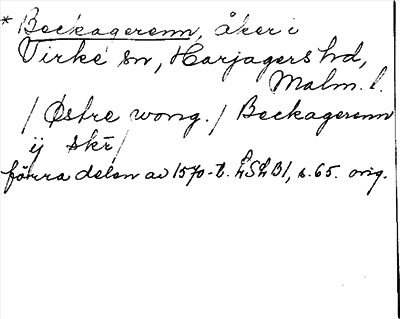 * Beckagerenn, åker i
Virke sn, Harjagers hd,
Malm. l.
/ Østre wong. / Beckagerenn
ij skr /
förra delen av 1570-t. LSLB1, s. 65. orig.